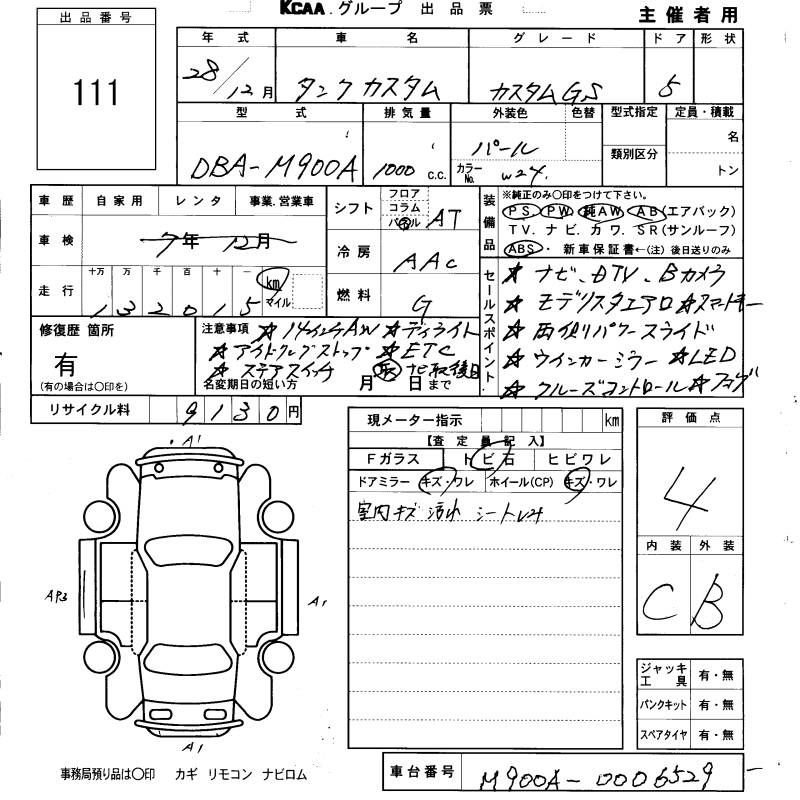 KCAA.グループ 出品票
主催者用
出品番号
111
年式 車名 グレード ドア 形状
28/12月 タンク カスタム カスタムGS 5
型式 排気量 外装色 色替 型式指定 定員・積載
DBA-M900A 1000 C.C. パール 名
カラーNo. W24. 類別区分 トン
車歴 自家用 レンタ 事業.営業車
シフト フロア コラム パネル AT
装備品 ※純正のみ〇印をつけて下さい。
PS PW 純AW AB(エアバック)
TV. ナビ. カワ. SR(サンルーフ)
ABS・新車保証書←(注)後日送りのみ
車検 7年12月
冷房 AAC
走行 十万 万 千 百 十 一 km マイル
132015
燃料 G
セールスポイント.
★ナビ、DTV、Bカメラ
★モデリスタエアロ★スマートキー
★両側パワースライド
★ウインカーミラー★LED
★クルーズコントロール★フォグ
修復歴 箇所
有
(有の場合は〇印を)
注意事項 ★14インチAW ★デイライト
★アイドリングストップ ★ETC
★ステアスイッチ ナビ取後日
名変期日の短い方 月 日まで
リサイクル料 9130円
現メーター指示 km
【査定員記入】
Fガラス トビ石 ヒビワレ
ドアミラー キズ・ワレ ホイール(CP) キズ・ワレ
室内キズ 汚れ シートレオ
評価点
4
内装 外装
C B
A1
AP3
A1
A1
ジャッキ工具 有・無
パンクキット 有・無
スペアタイヤ 有・無
事務局預り品は〇印 カギ リモコン ナビロム
車台番号 M900A-0006529